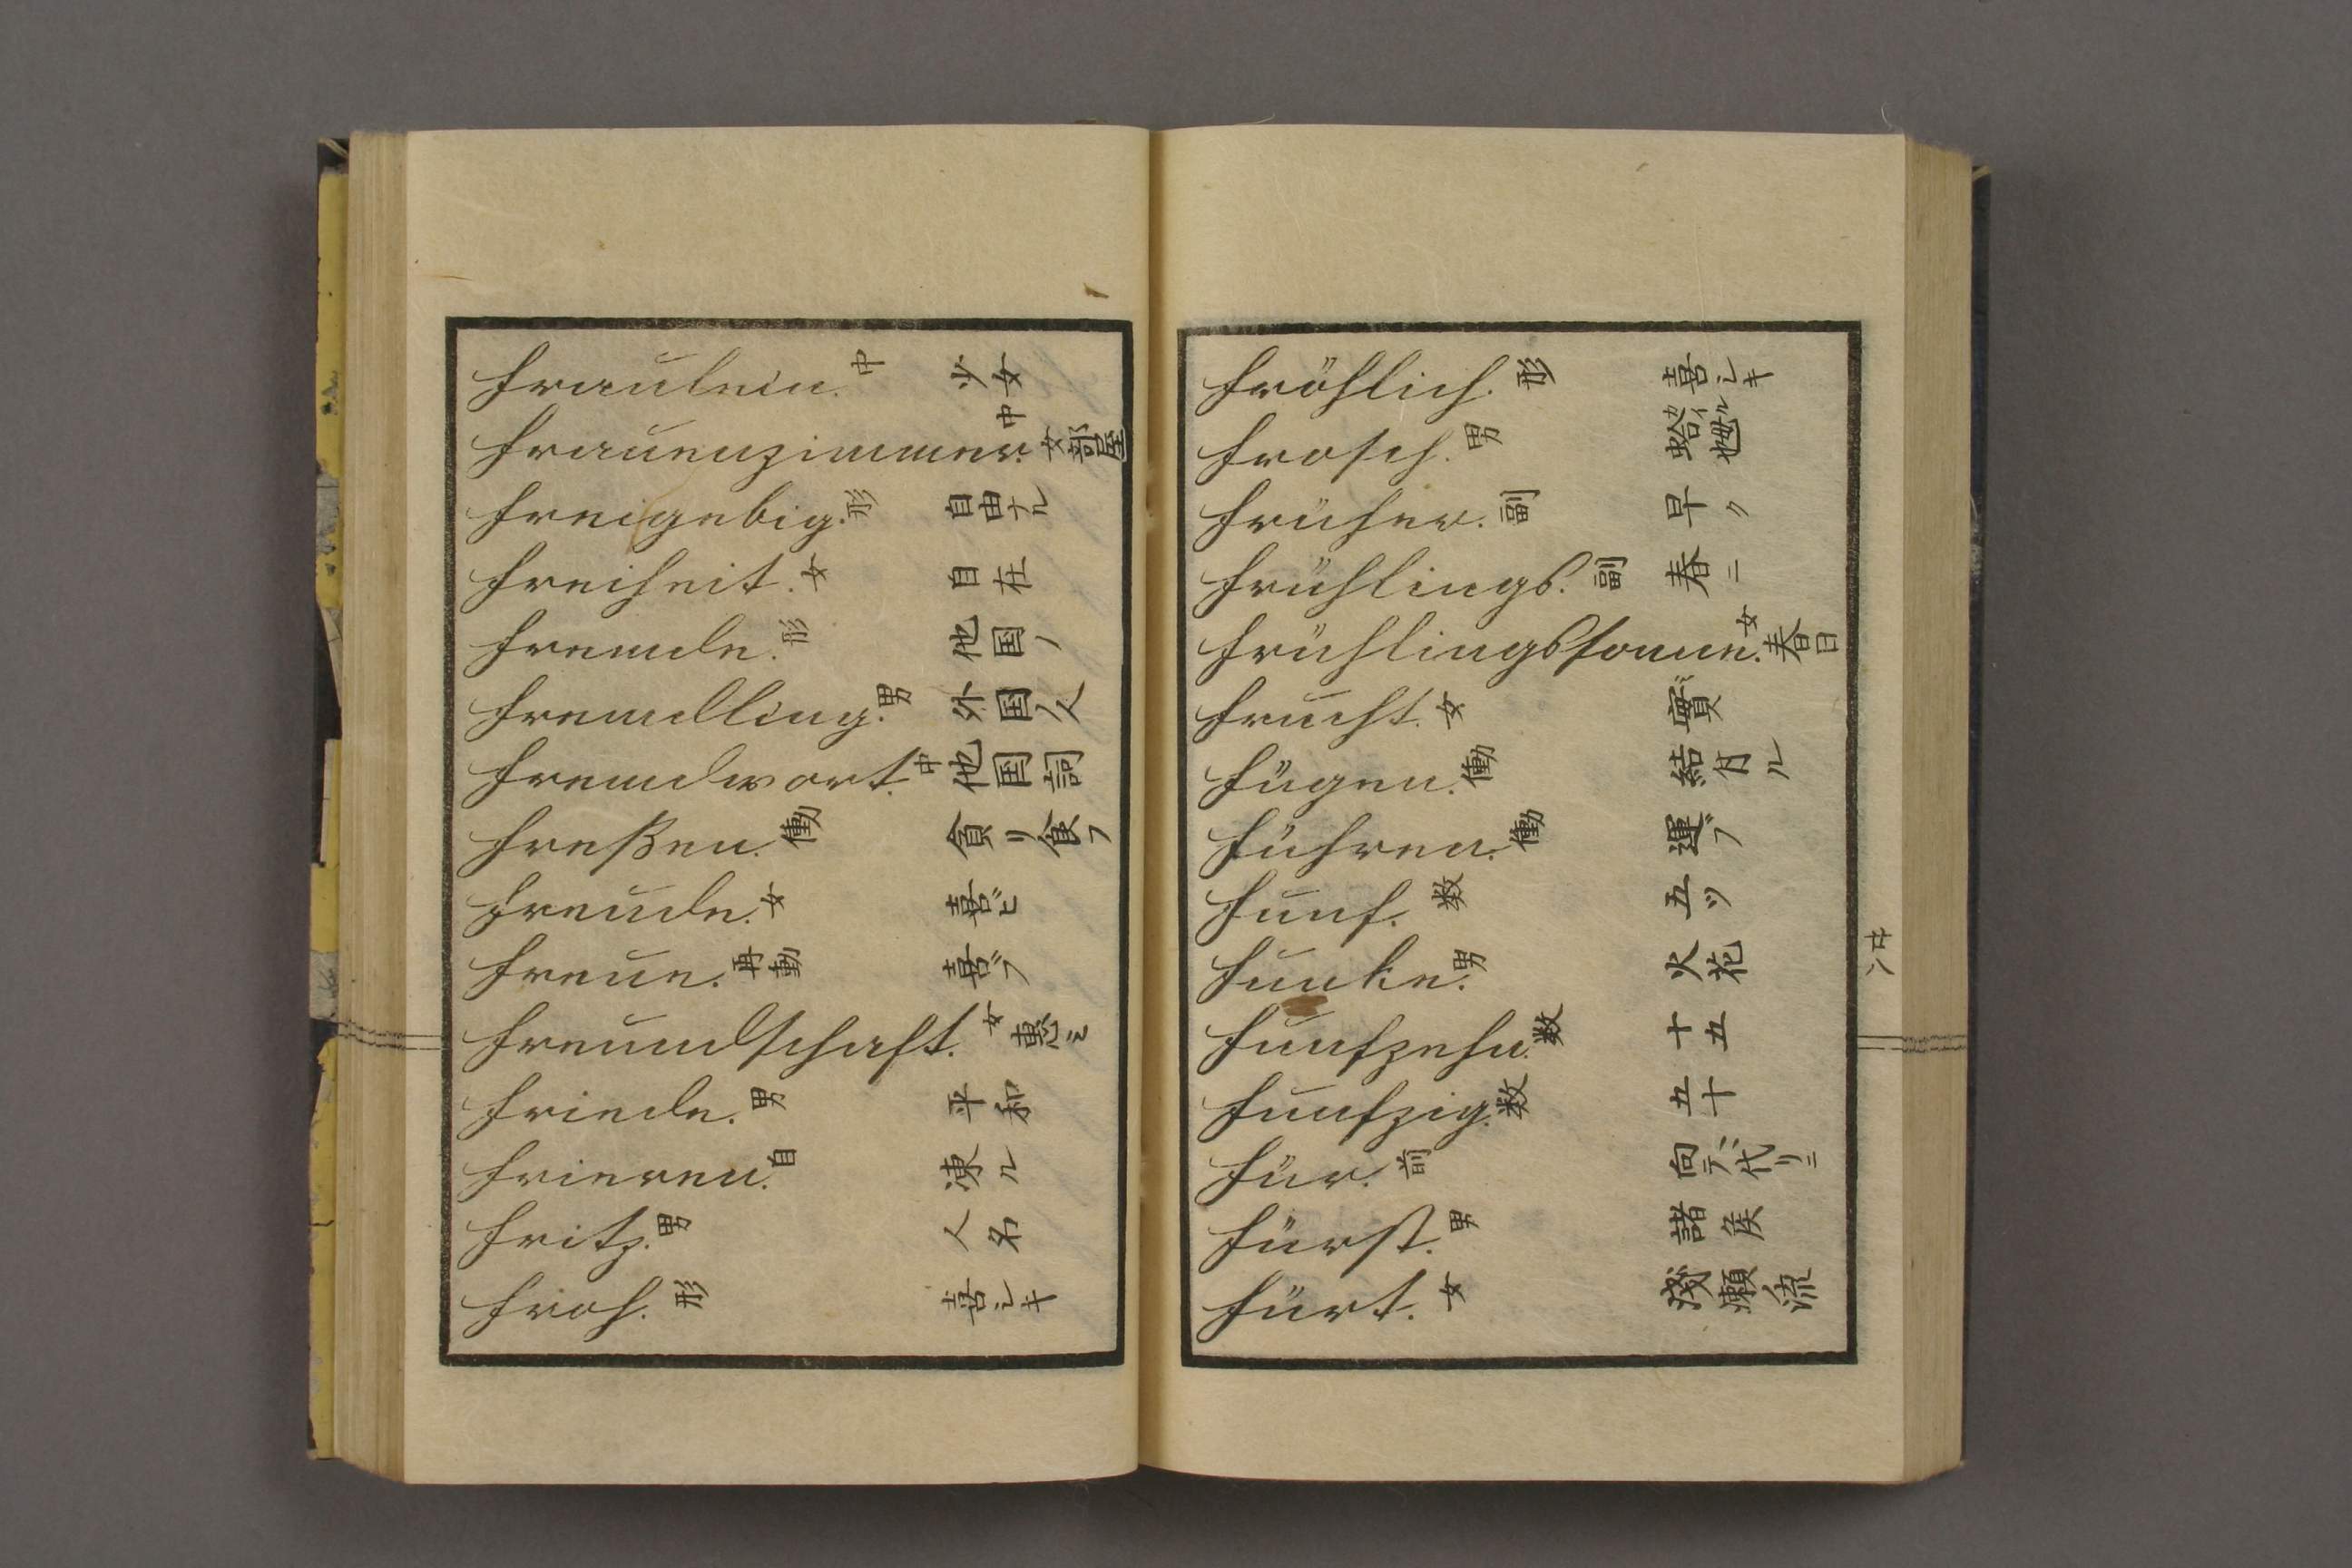 fraulein. 中 少女
frauenzimmer. 中 女部屋
freigebig. 形 自由ナル
freiheit. 女 自在
fremde. 形 他国ノ
fremdling. 男 外国人
fremdwort. 中 他国詞
freßen. 働 貪リ食フ
freude. 女 喜ビ
freue. 再動 喜ブ
freundschaft. 女 恵ミ
friede. 男 平和
frieren. 自 凍ル
fritz. 男 人名
froh. 形 喜シキ
fröhlich. 形 喜シキ
frosch. 男
früher. 副 早ク
frühlings. 副 春ニ
frühlingssonne. 女 春日
frucht. 女 實
fügen. 働 結付ル
führen. 働 運ブ
funf. 数 五ツ
funke. 男 火花
funfzehn. 数 十五
funfzig. 数 五十
für. 前 向テ 代リニ
fürst. 男 諸侯
fürt. 女 淺瀬 流